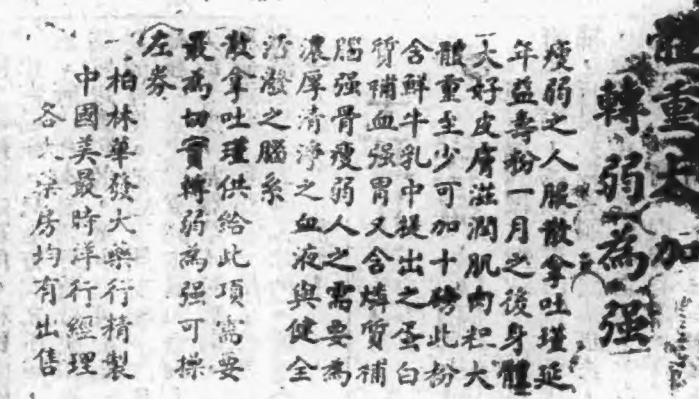 體重大加
轉弱為强
瘦弱之人服散拿吐瑾延
年益壽粉一月之後身體
大好皮膚滋潤肌肉粗大
體重至少可加十磅此粉
含鮮牛乳中提出之蛋白
質補血强胃又含燐質補
腦强骨瘦弱人之需要為
濃厚清淨之血液與健全
活潑之腦系
散拿吐瑾供給此項需要
最為切實轉弱為强可操
左券
柏林華發大藥行精製
中國美最時洋行經理
各大藥房均有出售